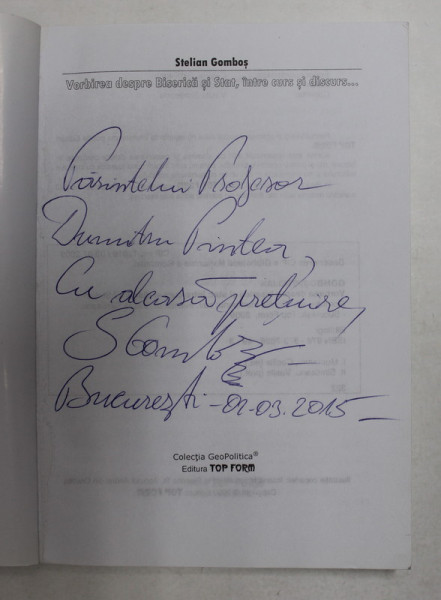 Stelian Gomboș
Vorbirea despre Biserică și Stat, între curs și discurs...
Părintelui Profesor
Dumitru Pintea,
Cu aleasă prețuire,
SGomboș
București - 01.03.2015 -
Colecția GeoPolitica®
Editura TOP FORM